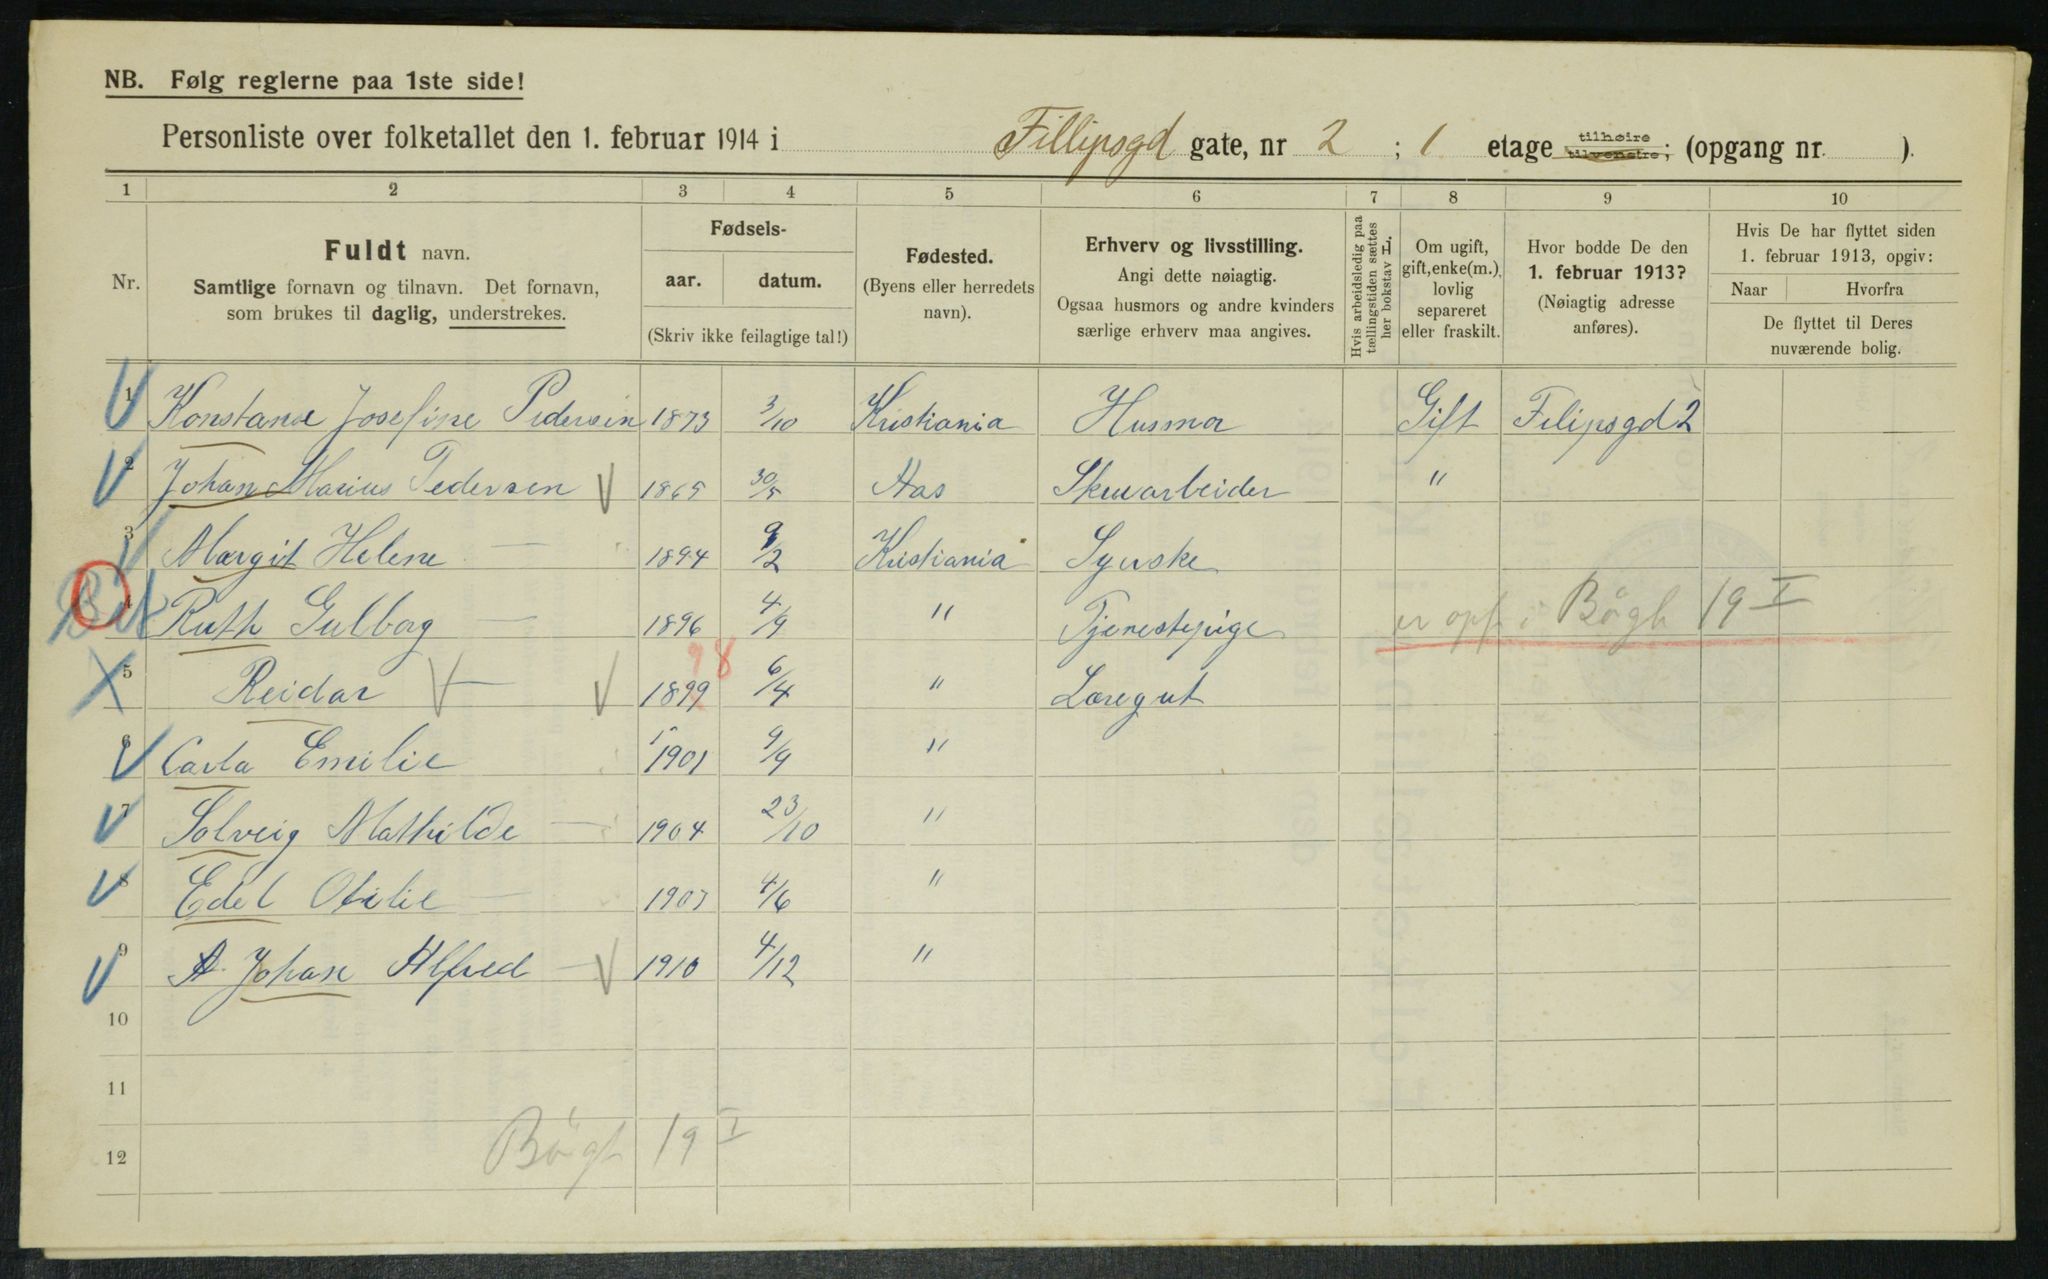 NB. Følg reglerne paa 1ste side!
Personliste over folketallet den 1. februar 1914 i Fillipsgd gate, nr 2 ; 1 etage tilhøire tilvenstre; (opgang nr. ).
1 2 3 4 5 6 7 8 9 10
Nr.
Fuldt navn.
Samtlige fornavn og tilnavn. Det fornavn,
som brukes til daglig, understrekes.
Fødsels-
aar. datum.
(Skriv ikke feilagtige tal!)
Fødested.
(Byens eller herredets
navn).
Erhverv og livsstilling.
Angi dette nøiagtig.
Ogsaa husmors og andre kvinders
særlige erhverv maa angives.
Hvis arbeidsledig paa
tællingstiden sættes
her bokstav L.
Om ugift,
gift, enke(m.),
lovlig
separeret
eller fraskilt.
Hvor bodde De den
1. februar 1913?
(Nøiagtig adresse
anføres).
Hvis De har flyttet siden
1. februar 1913, opgiv:
Naar Hvorfra
De flyttet til Deres
nuværende bolig.
1 Konstanse Josefine Pedersen 1873 3/10 Kristiania Husmor Gift Filipsgd 2
2 Johan Marius Pedersen V 1865 30/5 Aas Skoarbeider "
3 Margit Helene — 1894 9/2 Kristiania Syerske
4 Ruth Gulborg — 1896 4/9 " Tjenestepige er opf i Bögh 19 I
98
5 Reidar V — V 1899 6/4 " Læregut
6 Carla Emilie 1901 9/9 "
7 Solveig Mathilde — 1904 23/10 "
8 Edel Otilie — 1907 4/6 "
9 A. Johan Alfred — V 1910 4/12 "
10
11
12 Bögh 19 I